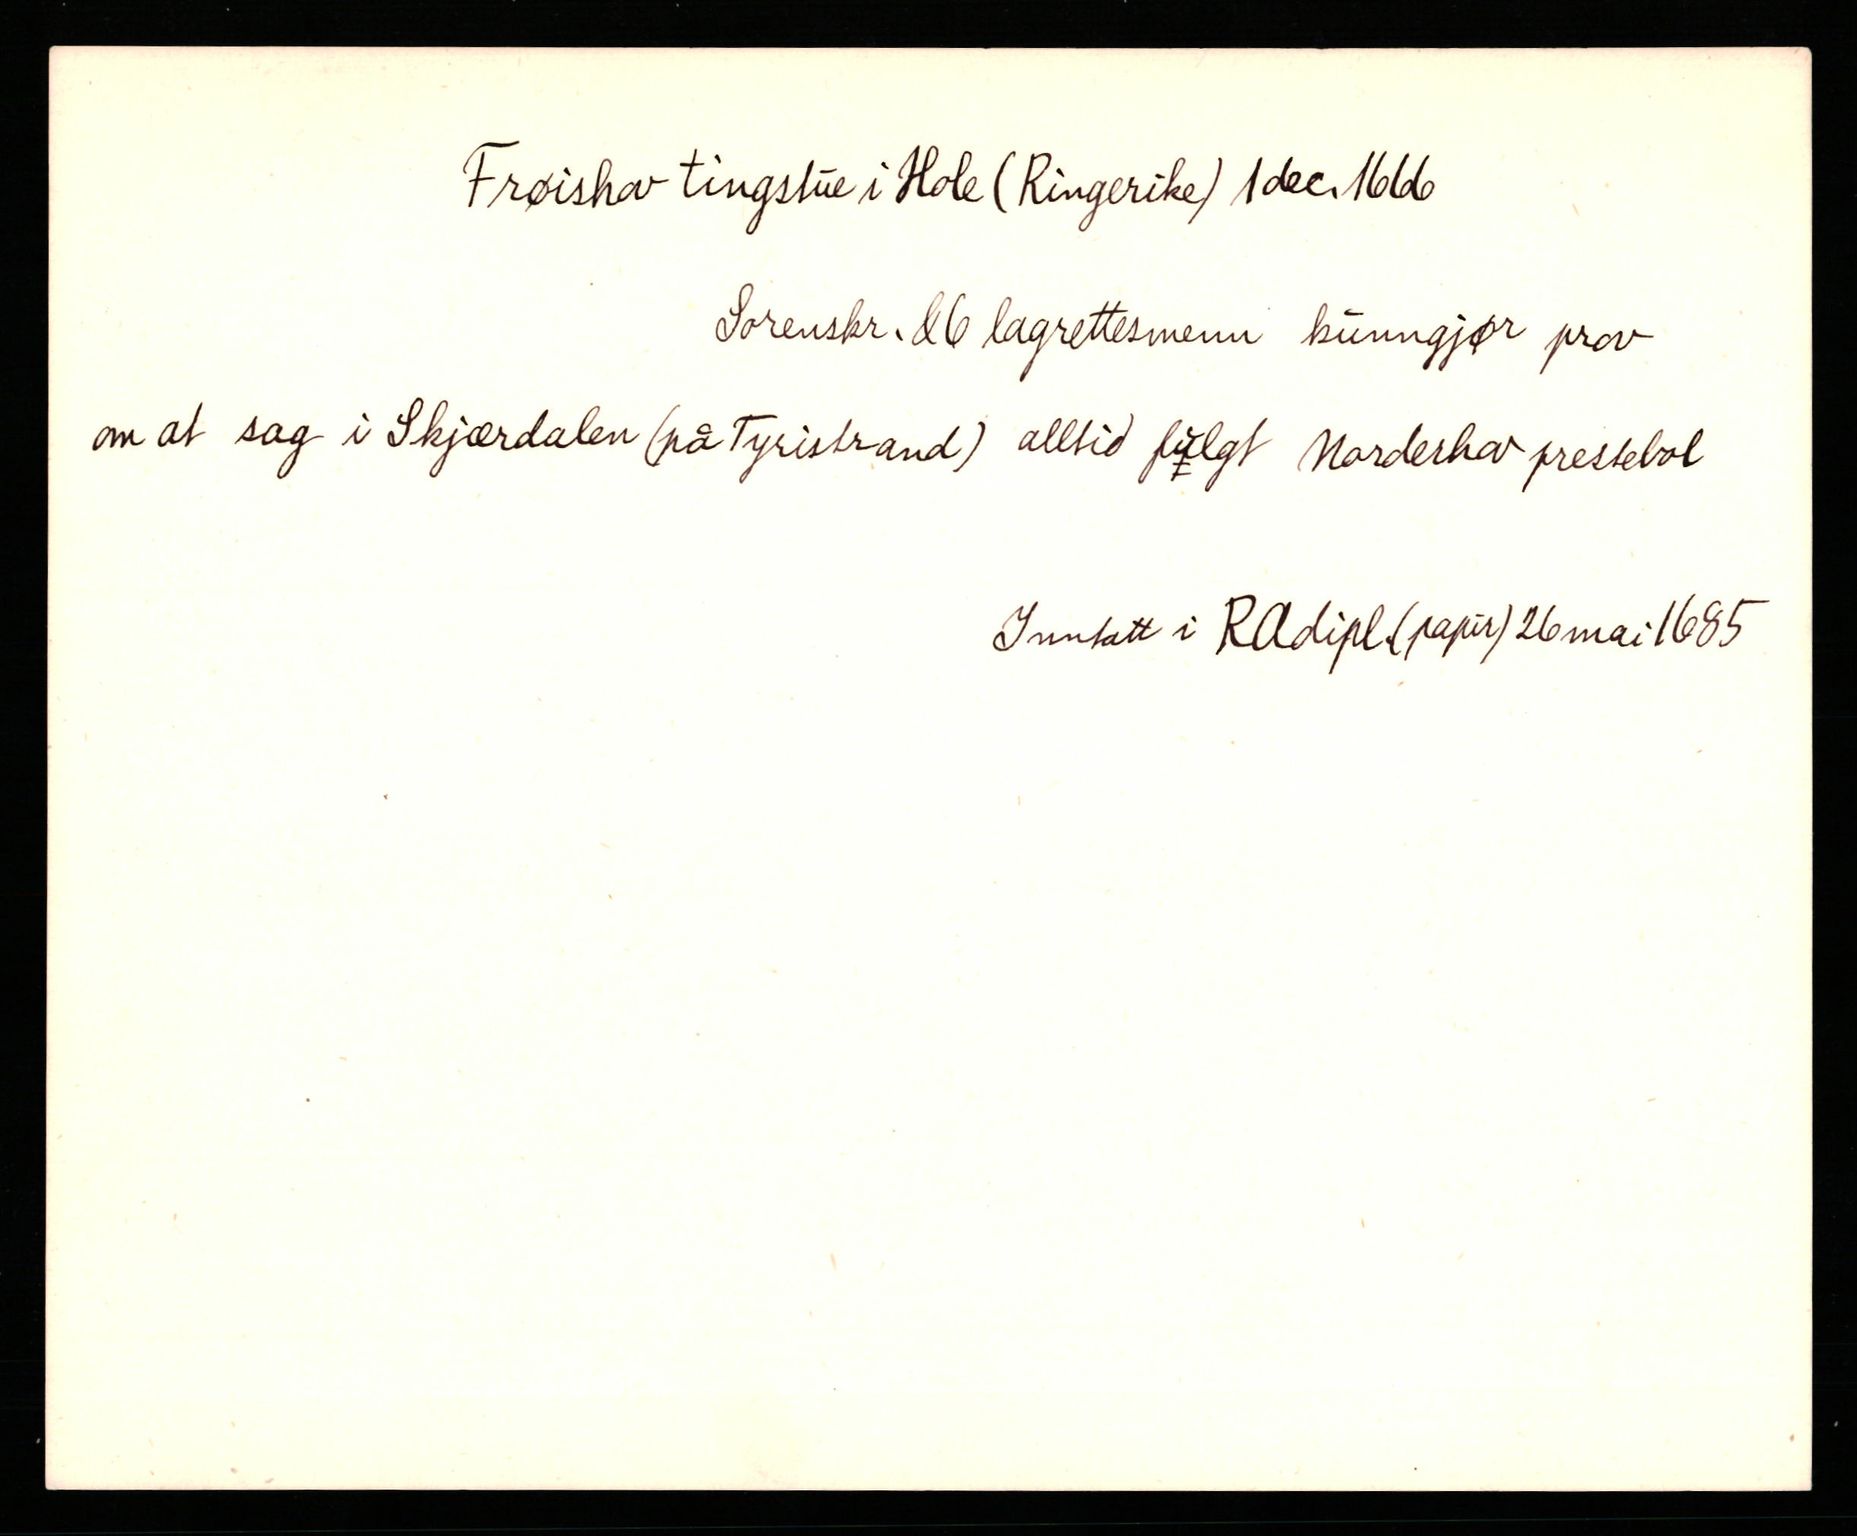 Frøishov tingstue i Hole (Ringerike) 1 dec. 1666
Sorenskr. & 6 lagrettesmenn kunngjør prov
om at sag i Skjærdalen (på Tyristrand) alltid fulgt Norderhov prestebol
Inntatt i RAdipl. (papir) 26 mai 1685